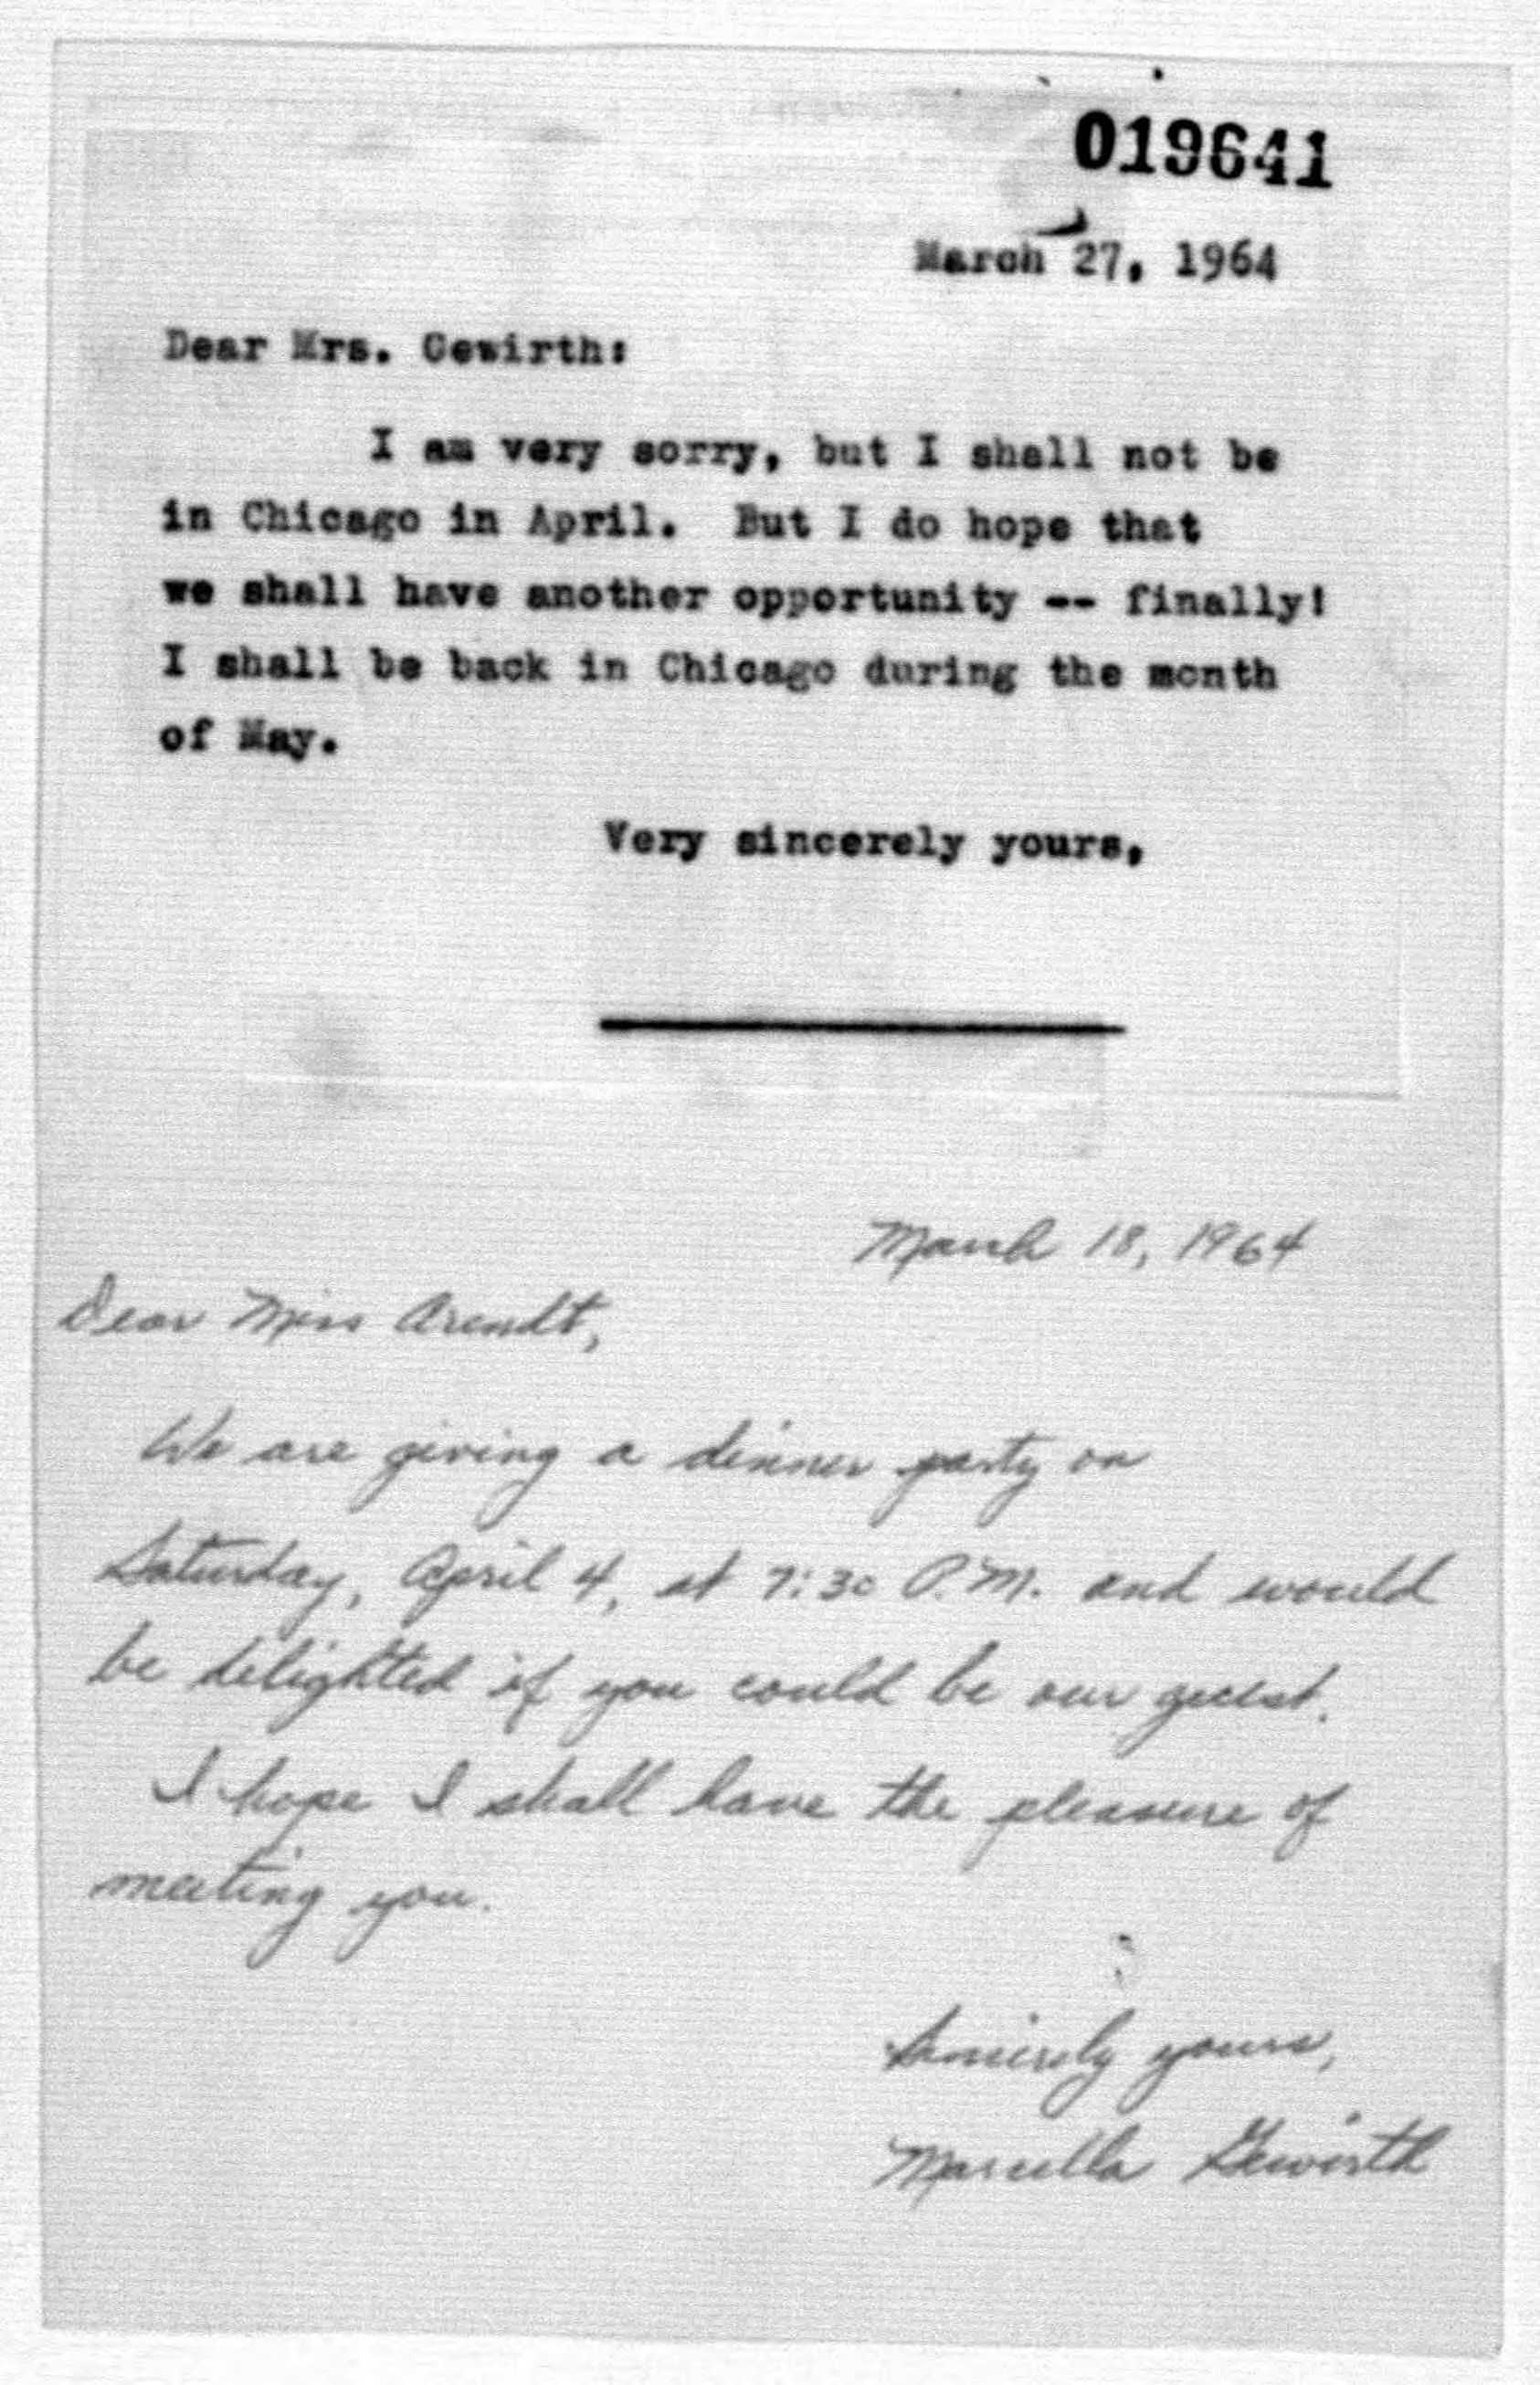 019641
March 27, 1964
Dear Mrs. Gewirth:
I am very sorry, but I shall not be
in Chicago in April. But I do hope that
we shall have another opportunity -- finally!
I shall be back in Chicago during the month
of May.
Very sincerely yours,
March 18, 1964
Dear Miss Arendt,
We are giving a dinner party on
Saturday, April 4, at 7:30 P.M. and would
be delighted if you could be our guest.
I hope I shall have the pleasure of
meeting you.
Sincerely yours,
Marcella Gewirth